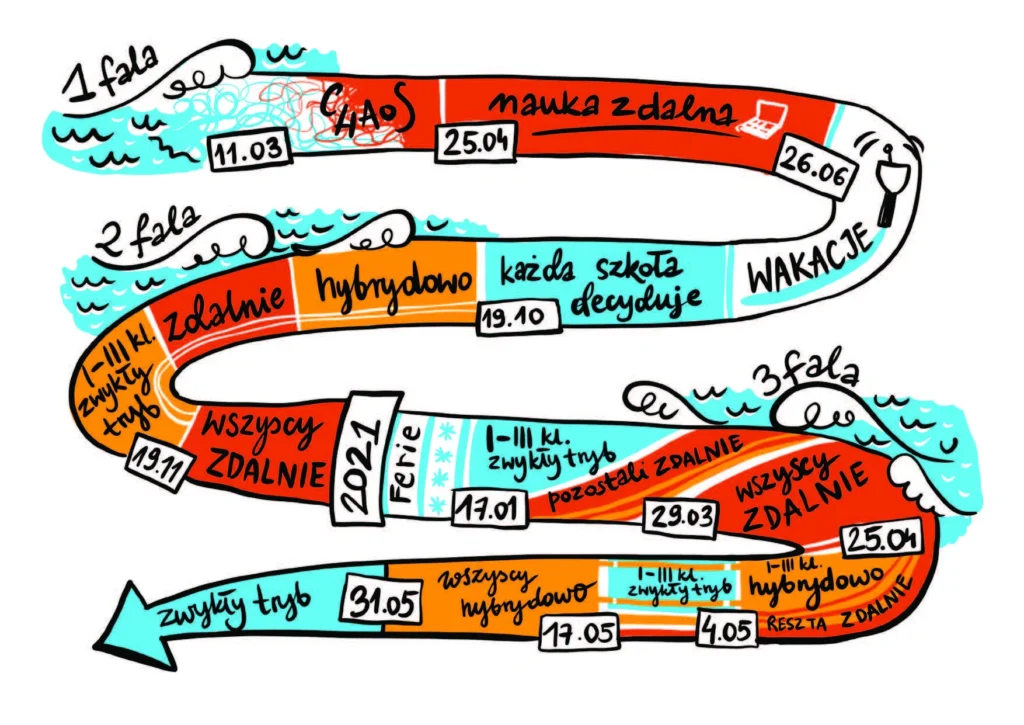 1 fala
CHAOS
nauka zdalna
11.03
25.04
26.06
WAKACJE
2 fala
każda szkoła
decyduje
19.10
hybrydowo
zdalnie
I-III kl.
zwykły
tryb
19.11
WSZYSCY
ZDALNIE
2021
Ferie
17.01
I-III kl.
zwykły tryb
pozostali ZDALNIE
29.03
3 fala
wszyscy
ZDALNIE
25.04
I-III kl.
hybrydowo
RESZTA ZDALNIE
4.05
I-III kl.
zwykły tryb
17.05
wszyscy
hybrydowo
31.05
zwykły tryb